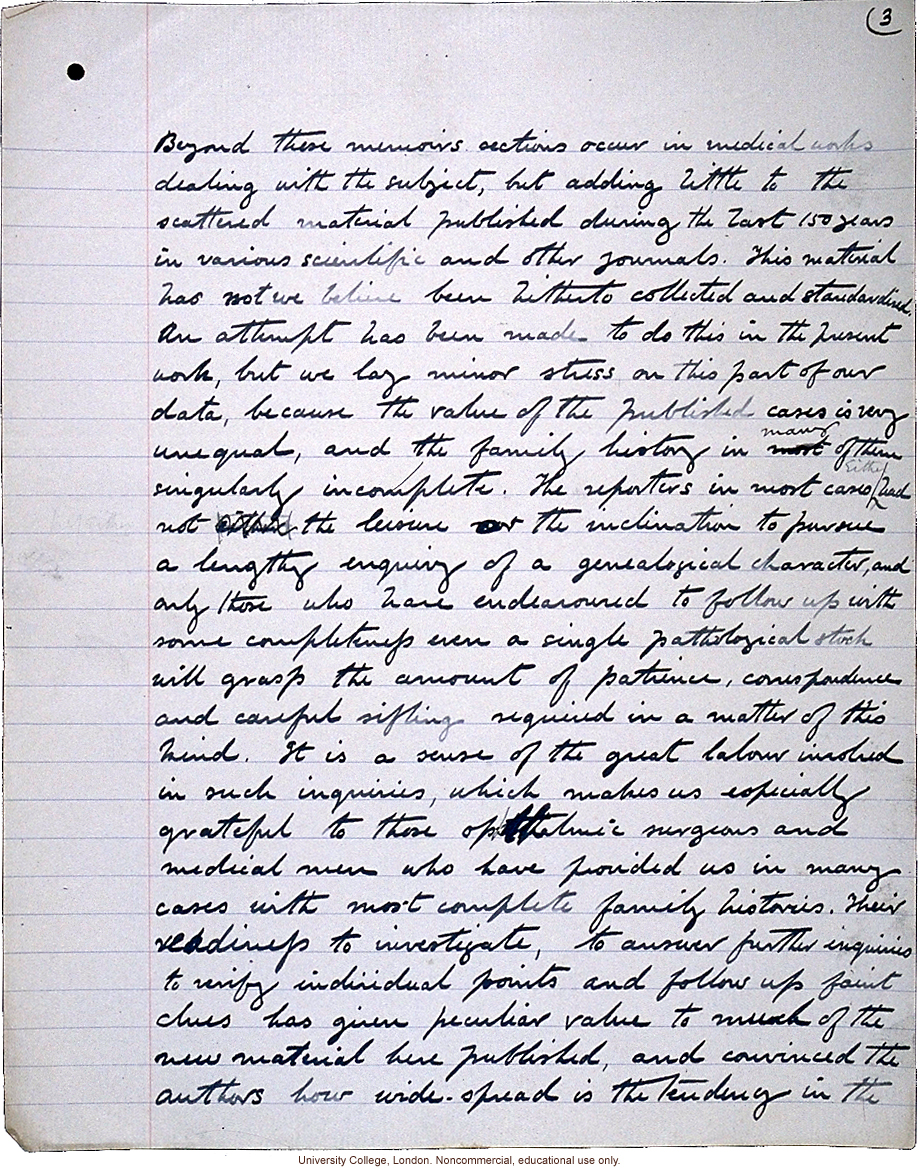 3
Beyond these memoirs sections occur in medical works
dealing with the subject, but adding little to the
scattered material published during the last 150 years
in various scientific and other journals. This material
has not we believe been hitherto collected and standardised.
An attempt has been made to do this in the present
work, but we lay minor stress on this part of our
data, because the value of the published cases is very
many
unequal, and the family history in most of them
Either
singularly incomplete. The reporters in most cases had
not either the leisure or the inclination to pursue
a lengthy enquiry of a genealogical character, and
only those who have endeavoured to follow up with
some completeness even a single pathological stock
will grasp the amount of patience, correspondence
and careful sifting required in a matter of this
kind. It is a sense of the great labour involved
in such inquiries, which makes us especially
grateful to those ophthalmic surgeons and
medical men who have provided us in many
cases with most complete family histories. Their
readiness to investigate, to answer further inquiries
to verify individual points and follow up faint
clues has given peculiar value to much of the
new material here published, and convinced the
authors how wide-spread is the tendency in the
University College, London. Noncommercial, educational use only.